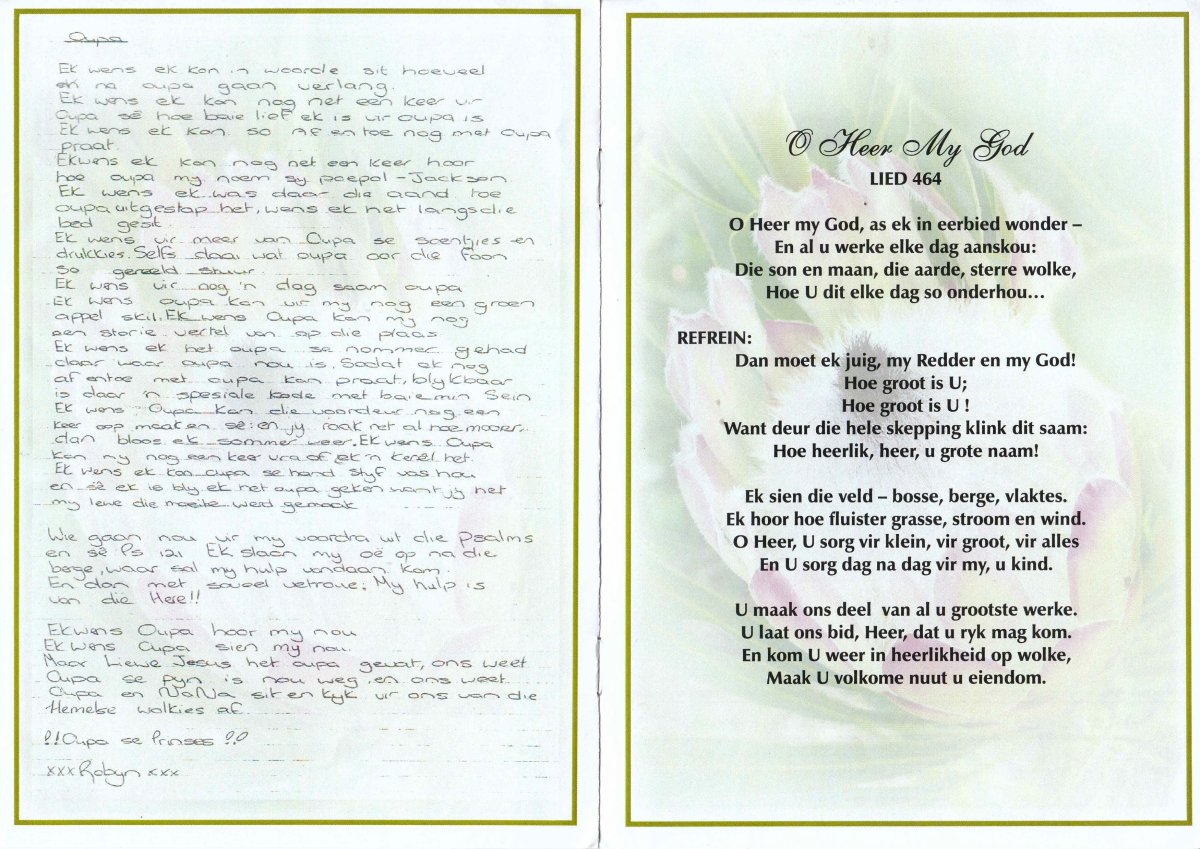 Oupa
Ek wens ek kon in woorde sit hoeveel
ek na oupa gaan verlang.
Ek wens ek kon nog net een keer vir
Oupa sê hoe baie lief ek is vir oupa is
Ek wens ek kon so Af en toe nog met Oupa
praat.
Ek wens ek kon nog net een keer hoor
hoe oupa my noem sy poepol-Jackson
Ek wens ek was daar die aand toe
oupa uitgestap het, wens ek het langs die
bed gesit.
Ek wens vir meer van Oupa se soentjies en
drukkies. Selfs daai wat oupa oor die foon
so gereeld stuur.
Ek wens vir nog 'n dag saam oupa
Ek wens oupa kon vir my nog een groen
appel skil. Ek wens Oupa kon my nog
een storie vertel van op die plaas
Ek wens ek het oupa se nommer gehad
daar waar oupa nou is. Sodat ek nog
af en toe met oupa kan praat, blykbaar
is daar 'n spesiale kode met baie min Sein
Ek wens Oupa kon die voordeur nog een
keer oop maak en sê: en jy raak net al hoe mooier,
dan bloos ek sommer weer. Ek wens Oupa
kon my nog een keer vra of ek 'n kêrel het.
Ek wens ek kon oupa se hand styf vas hou
en sê ek is bly ek het oupa geken want jy het
my lewe die moeite werd gemaak
Wie gaan nou vir my voordra uit die Psalms
en sê Ps 121 Ek slaan my oë op na die
berge, waar sal my hulp vandaan kom.
En dan met soveel vertroue: My hulp is
van die Here!!
Ek wens Oupa hoor my nou
Ek wens Oupa sien my nou.
Maar Liewe Jesus het oupa gevat, ons weet
Oupa se pyn is nou weg, en ons weet
Oupa en NaNa sit en kyk vir ons van die
Hemelse wolkies af
!!Oupa se Prinses!!
xxx Robyn xxx
O Heer My God
LIED 464
O Heer my God, as ek in eerbied wonder –
En al u werke elke dag aanskou:
Die son en maan, die aarde, sterre wolke,
Hoe U dit elke dag so onderhou…
REFREIN:
Dan moet ek juig, my Redder en my God!
Hoe groot is U;
Hoe groot is U !
Want deur die hele skepping klink dit saam:
Hoe heerlik, heer, u grote naam!
Ek sien die veld – bosse, berge, vlaktes.
Ek hoor hoe fluister grasse, stroom en wind.
O Heer, U sorg vir klein, vir groot, vir alles
En U sorg dag na dag vir my, u kind.
U maak ons deel van al u grootste werke.
U laat ons bid, Heer, dat u ryk mag kom.
En kom U weer in heerlikheid op wolke,
Maak U volkome nuut u eiendom.